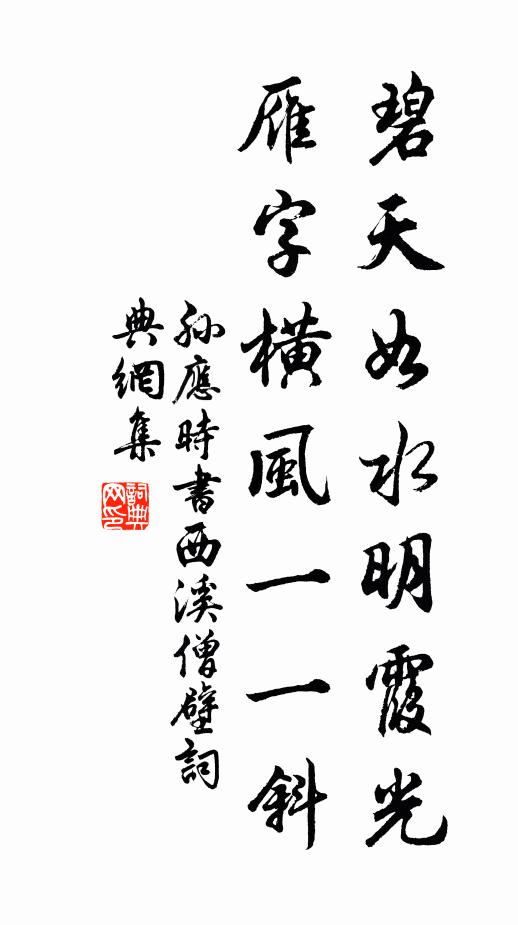 碧天如水明霞光
雁字橫風一一斜
孫應時書西溪僧壁詞
典網集
詞典
网印